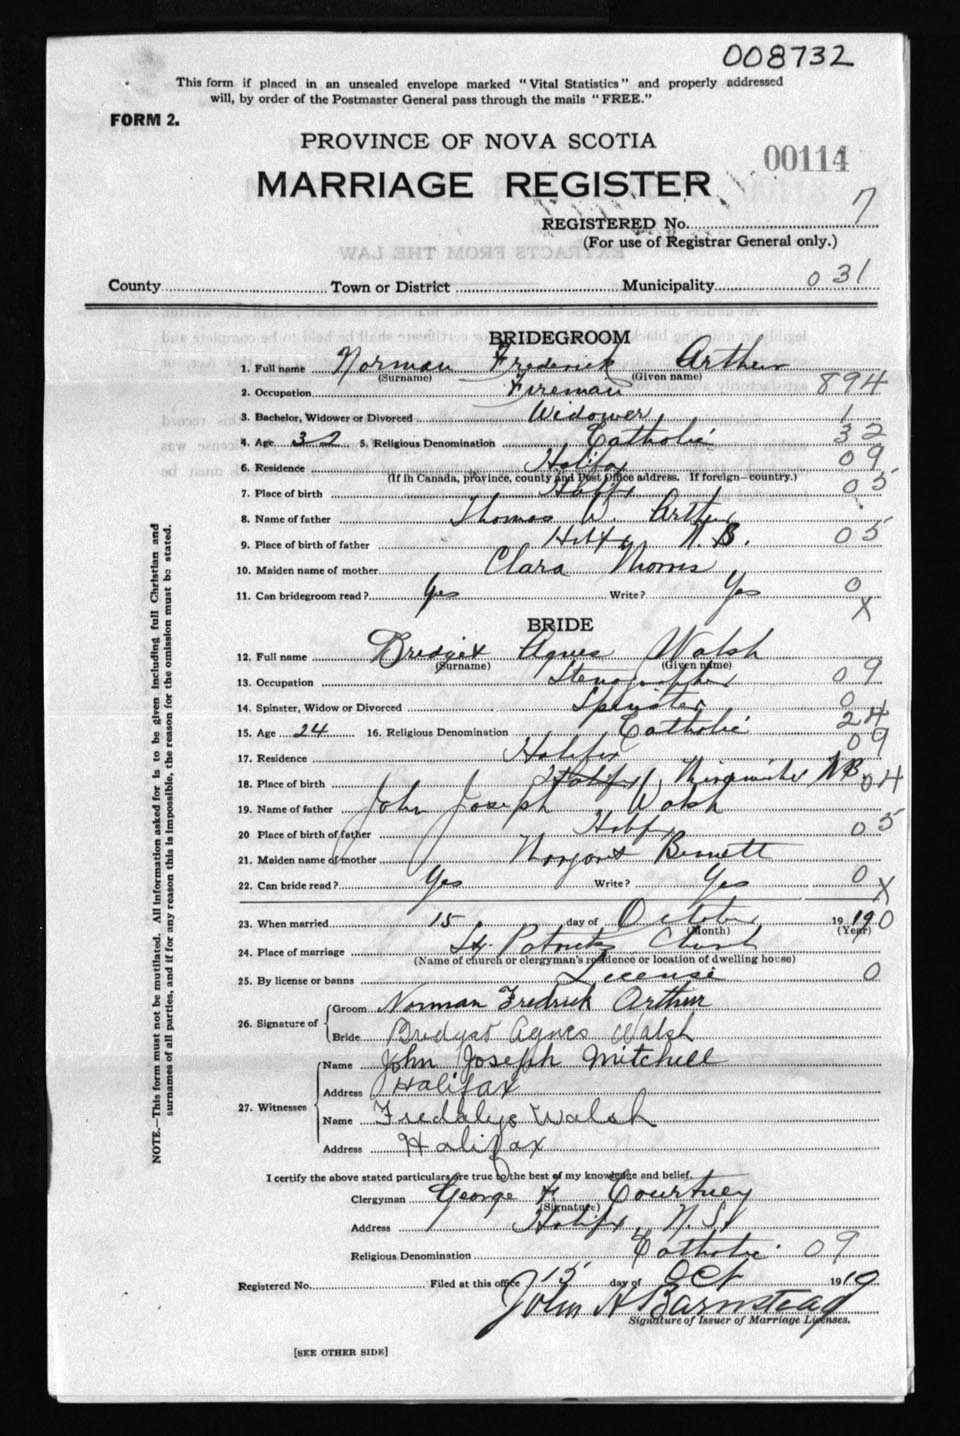 008732
This form if placed in an unsealed envelope marked "Vital Statistics" and properly addressed
will, by order of the Postmaster General pass through the mails "FREE."
FORM 2.
PROVINCE OF NOVA SCOTIA
00114
MARRIAGE REGISTER
REGISTERED No. 7
(For use of Registrar General only.)
County Town or District Municipality 031
BRIDEGROOM
1. Full name Norman Frederick Arthur
(Surname) (Given name)
2. Occupation Fireman 894
3. Bachelor, Widower or Divorced Widower 1
4. Age 32 5. Religious Denomination Catholic 32
6. Residence Halifax 09
(If in Canada, province, county and Post Office address. If foreign—country.)
7. Place of birth Halifx 05
8. Name of father Thomas W. Arthur
9. Place of birth of father Hlfx N.S. 05
10. Maiden name of mother Clara Morris
11. Can bridegroom read? Yes Write? Yes 0
X
BRIDE
12. Full name Bridget Agnes Walsh
(Surname) (Given name)
13. Occupation Stenographer 09
14. Spinster, Widow or Divorced Spinster 0
15. Age 24 16. Religious Denomination Catholic 24
17. Residence Halifax 09
18. Place of birth Halifx NB 04
19. Name of father John Joseph Walsh
20 Place of birth of father Halifx 05
21. Maiden name of mother Margaret Bennett
22. Can bride read? Yes Write? Yes 0 X
23. When married 15 day of October 19 19 0
(Month) (Year)
24. Place of marriage St. Patricks Church
(Name of church or clergyman's residence or location of dwelling house)
25. By license or banns License 0
26. Signature of
Groom Norman Fredrick Arthur
Bride Bridget Agnes Walsh
27. Witnesses
Name John Joseph Mitchell
Address Halifax
Name Walsh
Address Halifax
I certify the above stated particulars are true to the best of my knowledge and belief.
Clergyman George F Courtney
(Signature)
Address Halifx, N.S.
Religious Denomination Catholic 09
Registered No. Filed at this office 15 day of Oct 1919
John A Barnstead
Signature of Issuer of Marriage Licenses.
[SEE OTHER SIDE]
NOTE.—This form must not be mutilated. All information asked for is to be given including full Christian and
surnames of all parties, and if for any reason this is impossible, the reason for the omission must be stated.